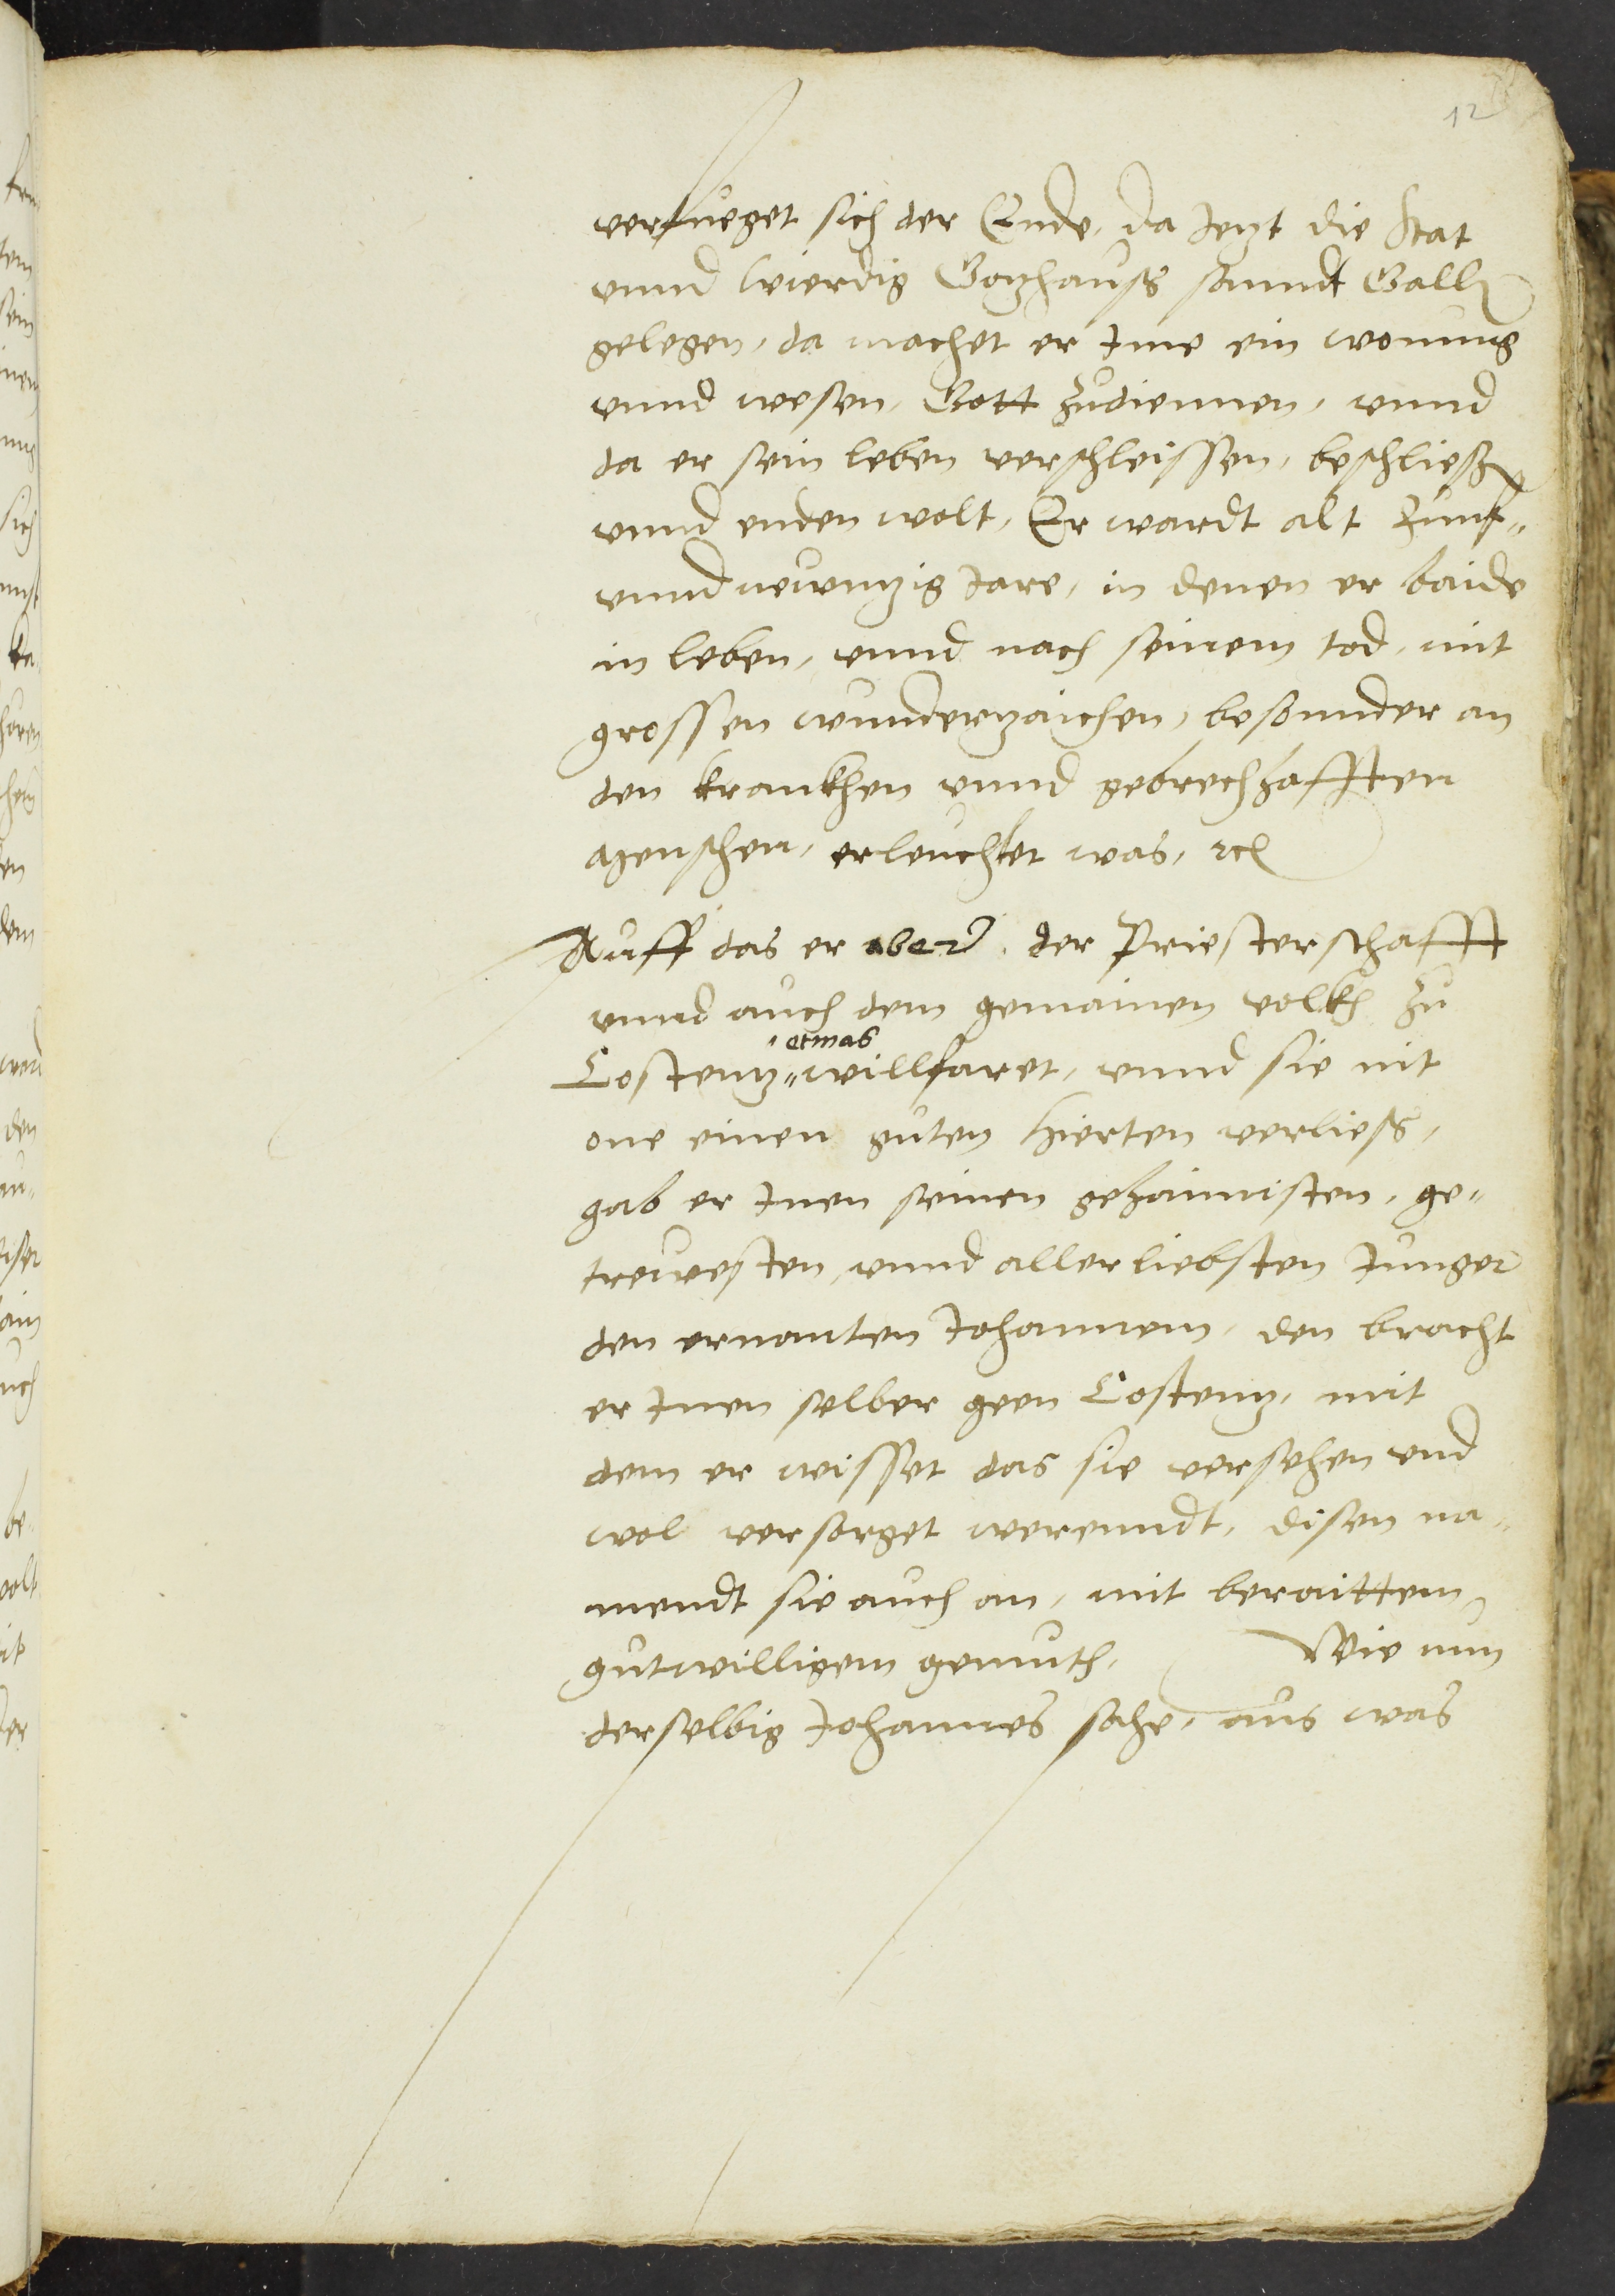 12
verfueget sich der Ende, da Jetzt die stat
vnnd wierdig Gotzhauss sanndt Gallen
gelegen, da machet er Jme ein wonung
vnnd wesen, Gott zudiennen, vnnd
da er sein leben verschleissen, beschliessen
vnnd enden wolt, Er wardt alt Funf„
vnnd newntzig Jare, in denen er baide
in leben, vnnd nach seinem tod, mit
grossen wunderzaichen, besonnder an
den krankhen vnnd gebrechhafften
menschen, erleuchtet was, etc
Auff das er aber der Priesterschafft
vnnd auch dem gemainen volkh zu
etwas
Costentz„ willfaret, vnnd sie nit
one einen guten Hierten verliess,
gab er Jnen seinen gehaimisten, ge„
trewesten, vnnd allerliebsten Junger
den ernanten Johannem, den bracht
er Jnen selber geen Costentz, mit
dem er wisset das sie versehen vnd
wol versorget werenndt, disen na„
mendt sie auch an, mit beraittem
gutwilligem gemuth, Wie nun
derselbig Johannes sahe, aus was